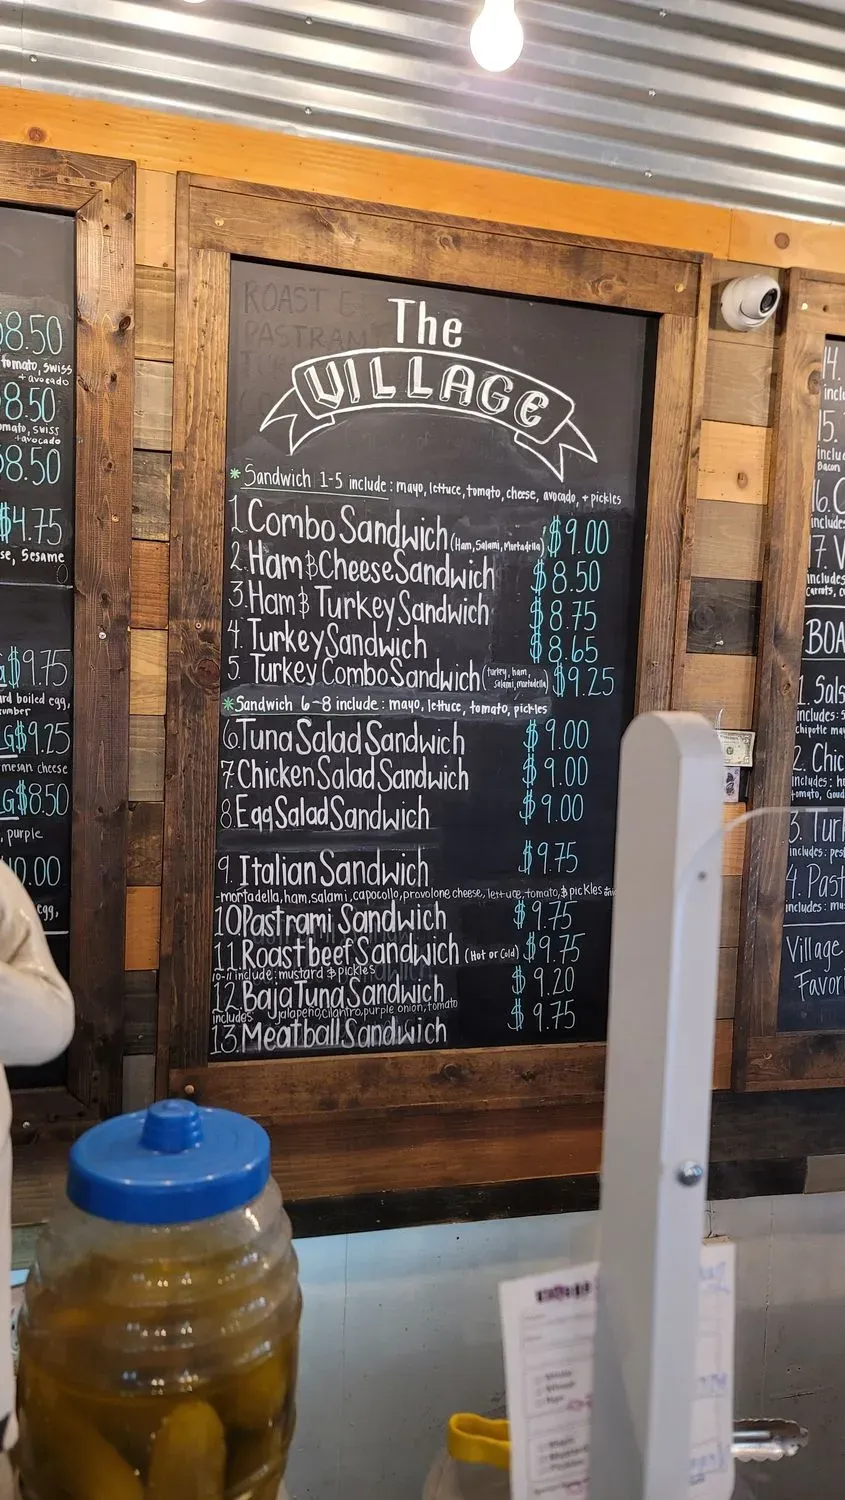 $8.50
tomato, swiss
+ avocado
8.50
tomato, swiss
+avocado
$8.50
$4.75
se, Sesame
$9.75
rd boiled egg,
G$9.25
mesan cheese
G$8.50
, purple
10.00
egg,
ROAST
PASTRAM
The
VILLAGE
*Sandwich 1-5 include: mayo, lettuce, tomato, cheese, avocado, + pickles
1. Combo Sandwich (Ham, Salami, Mortadella) $9.00
2. Ham & Cheese Sandwich $8.50
3. Ham & Turkey Sandwich 8.75
4. Turkey Sandwich $8.65
5. Turkey Combo Sandwich (turkey, ham, salami, mortadella) $9.25
*Sandwich 6-8 include: mayo, lettuce, tomato, pickles
6. Tuna Salad Sandwich $9.00
7. Chicken Salad Sandwich $9.00
8. Egg Salad Sandwich $9.00
9. Italian Sandwich $9.75
-mortadella, ham, salami, capocollo, provolone cheese, lettuce, tomato, & pickles
10 Pastrami Sandwich $9.75
11. Roast beef Sandwich (Hot or Cold) $9.75
10-11 include: mustard & pickles
12. Baja Tuna Sandwich $9.20
includes: jalapeño, cilantro, purple onion, tomato
13. Meatball Sandwich $9.75
14.
inclu
15.
inclu
Bacon
16.
includes
17. V
includes
carrots, c
BOA
1. Sals
includes: s
chipotle may
2. Chic
includes: h
tomato, Goud
3. Turk
includes: pes
4. Past
includes: mu
Village
Favori